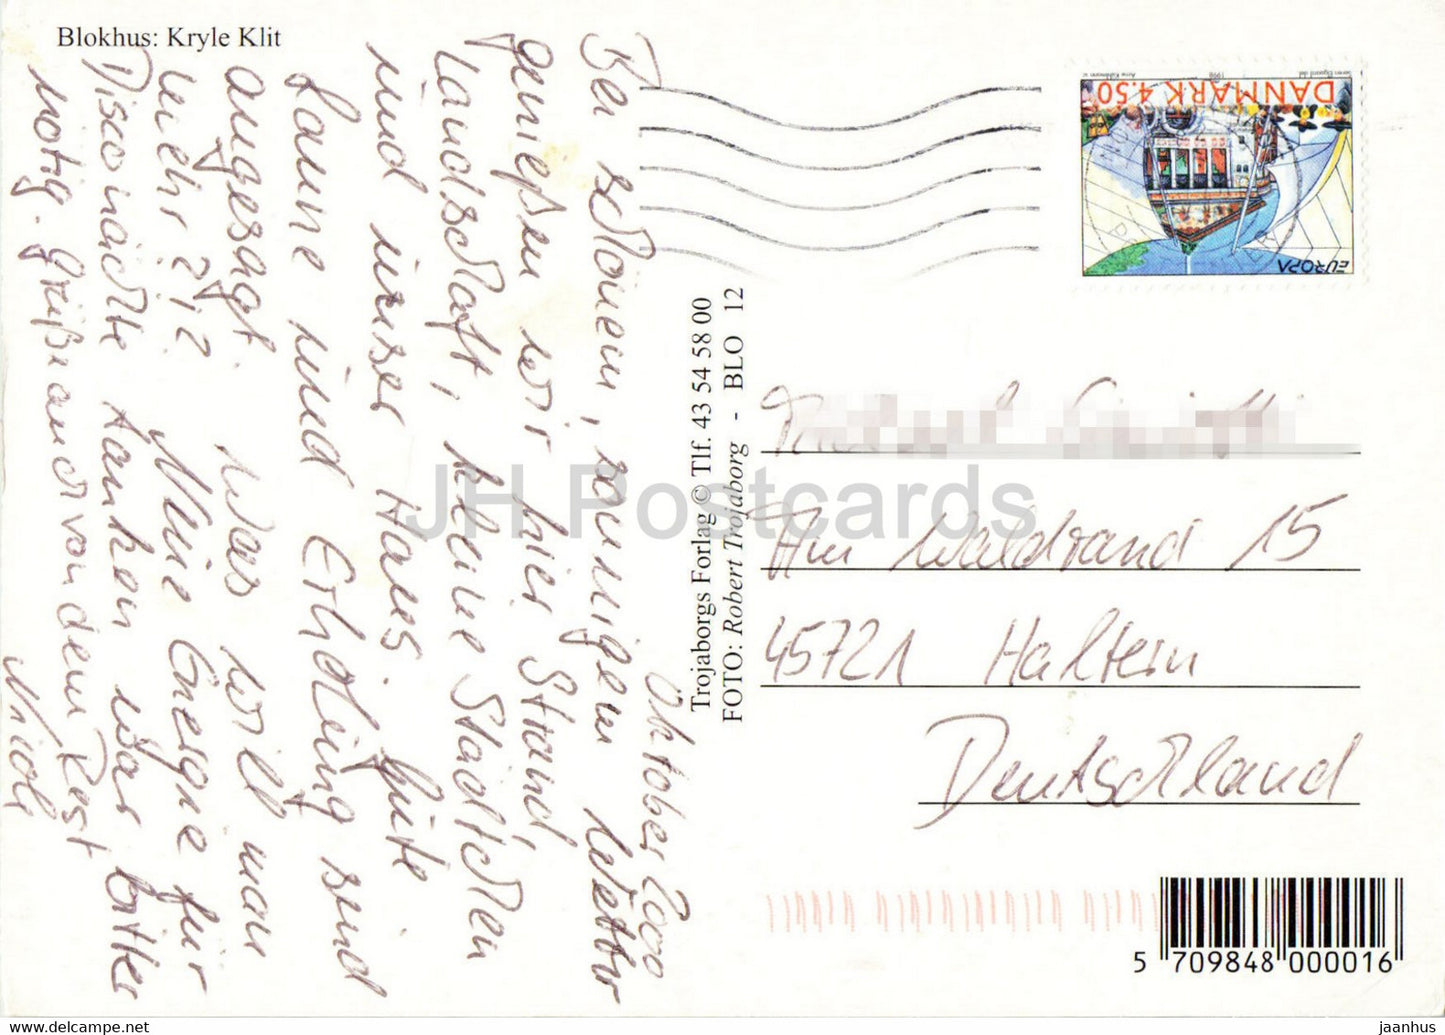 Blokhus: Kryle Klit
Oktober 2000
Bei schönem, sonnigem Wetter
genießen wir hier Strand,
Landschaft, kleine Städtchen
und unser Haus. Gute
Laune und Erholung sind
angesagt. Was will man
mehr?,? Meine Energie für
Discomächte tanken war bitter
nötig. Grüße auch von dem Rest
Nicole
Trojaborgs Forlag © Tlf. 43 54 58 00
FOTO: Robert Trojaborg - BLO 12
DANMARK 4.50
1998
EUROPA
Am Waldrand 15
45721 Haltern
Deutschland
5 709848 000016
JH Postcards
delcampe.net
jaanhus